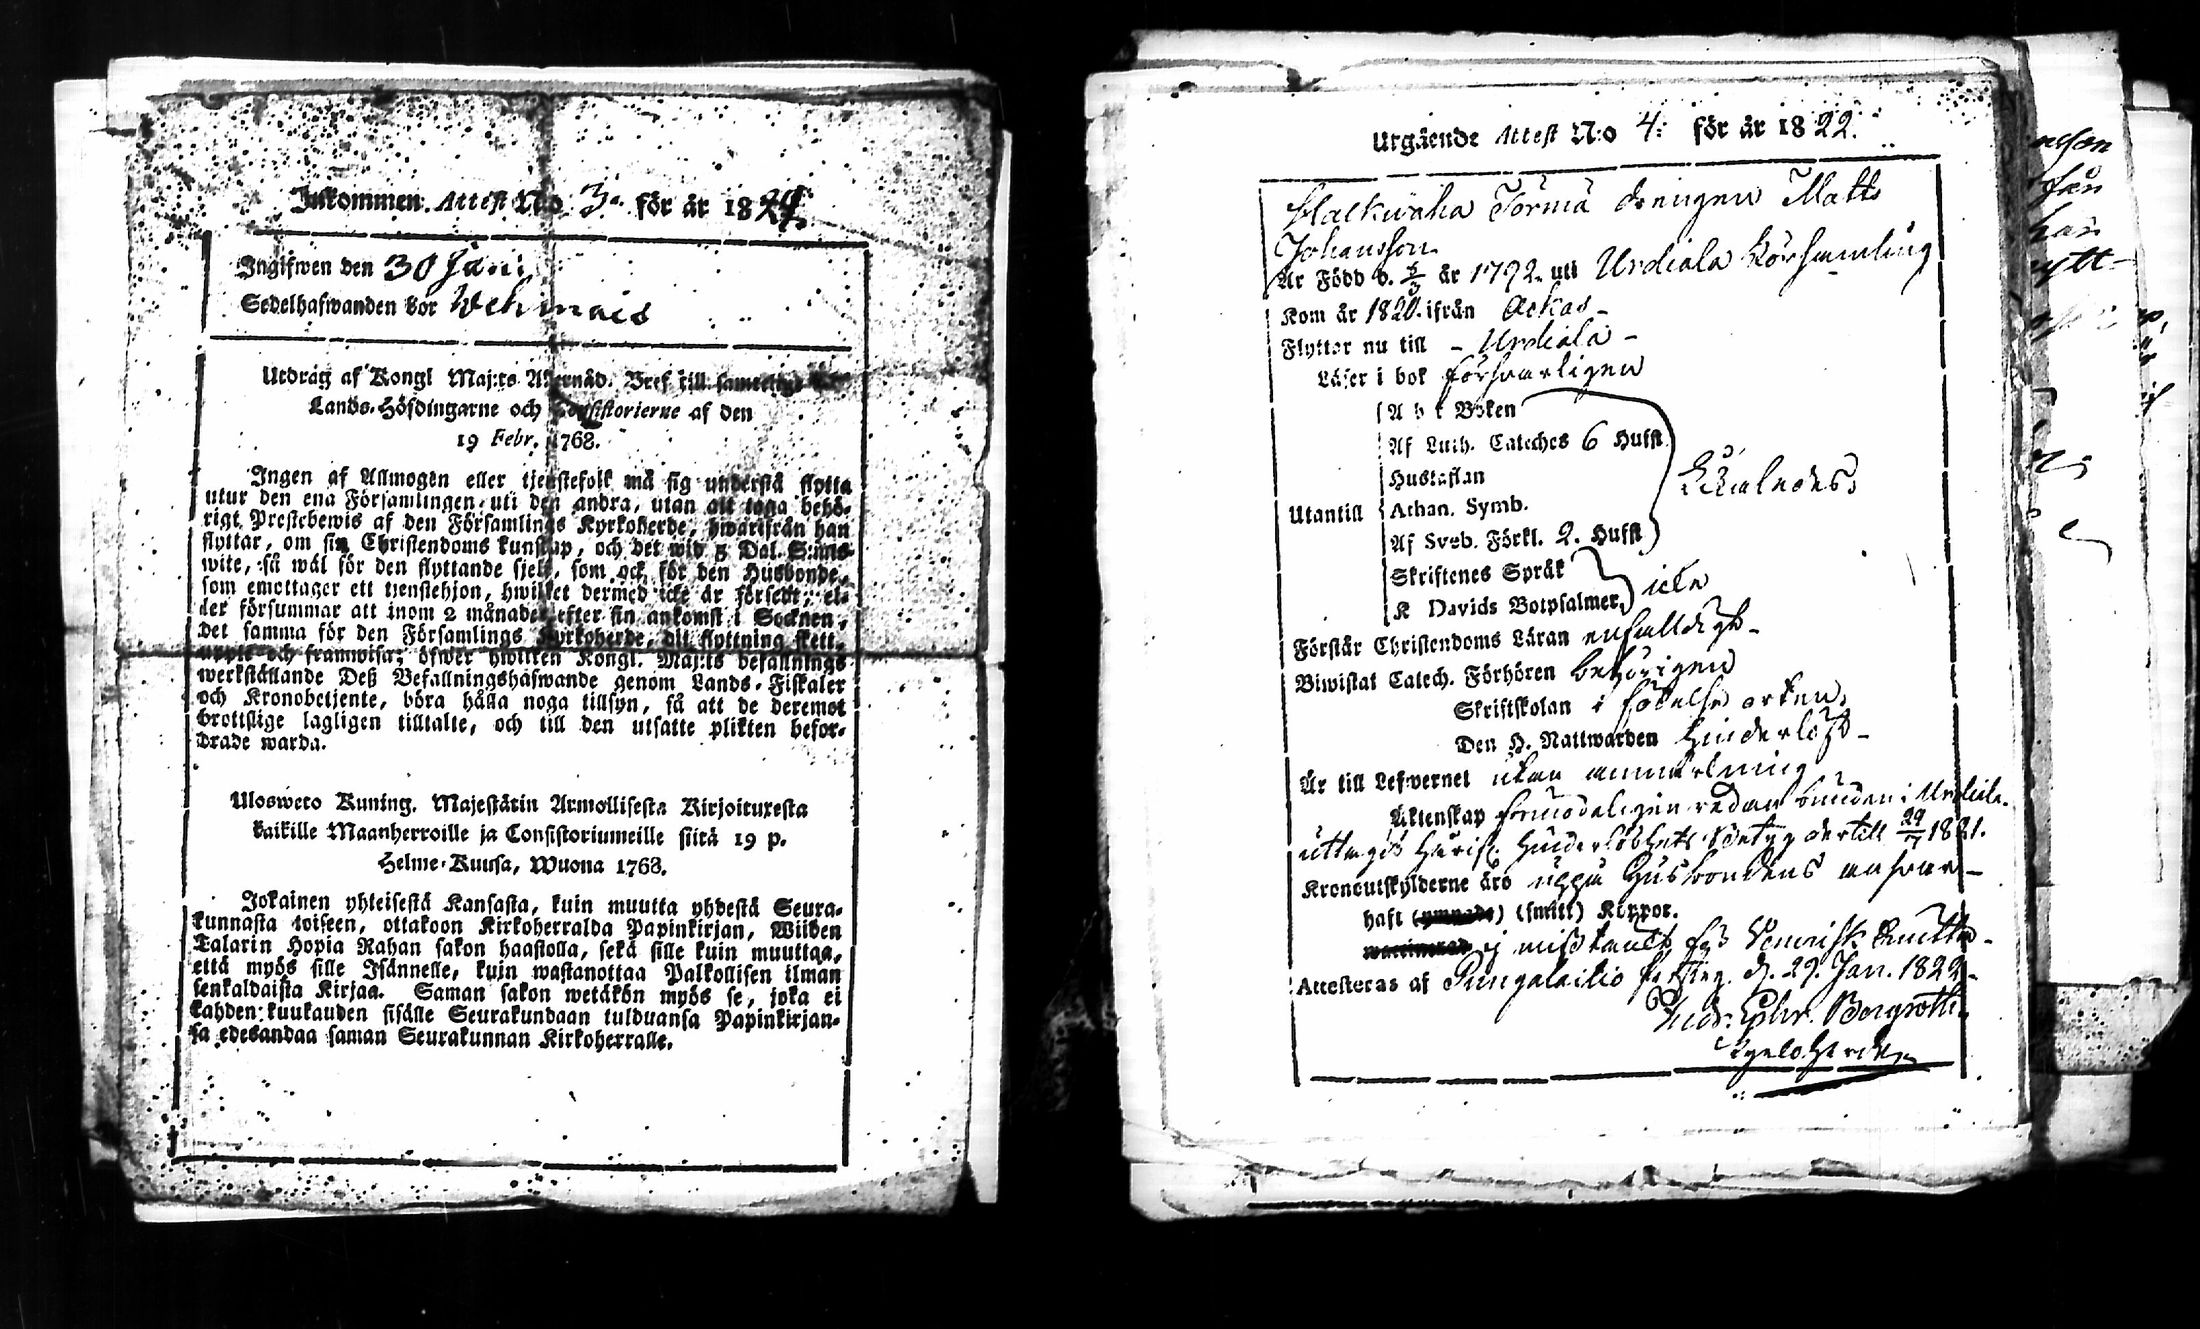 Inkommen Attest No 3. för år 1824
Ingifwen den 30 Jani
Sedelhafwanden bor Wehmais
Utdrag af Kongl Maj:ts Allernåd. Bref till samtelige
Lands-Höfdingarne och Consistorierne af den
19 Febr. 1768.
Ingen af Allmogen eller tjenstefolk må sig understå flytta
utur den ena Församlingen uti den andra, utan att taga behö-
rigt Prestebewis af den Församlings Kyrkoherde, hwarifrån han
flyttar, om sin Christendoms kunskap, och det wid 5 Dal. S:mts
wite, så wäl för den flyttande sjelf, som ock för den Husbonde,
som emottager ett tienstehjon, hwilket dermed icke är försedt; el-
ler försummar att inom 2 månader efter sin ankomst i Socknen,
det samma för den Församlings Kyrkoherde, dit flyttning skett,
uppte och framwisa; öfwer hwilken Kongl. Maj:ts befallnings
werkställande Deß Befallningshafwande genom Lands-Fiskaler
och Kronobetjente, böra hålla noga tillsyn, så att de deremot
brottslige lagligen tilltalte, och till den utsatte plikten befor-
drade warda.
Ulosweto Kuning. Majestätin Armollisesta Kirjoituxesta
kaikille Maanherroille ja Consistoriumeille siitä 19 p.
Helme-Kuusa, Wuona 1768.
Jokainen yhteisestä Kansasta, kuin muutta yhdestä Seura-
kunnasta toiseen, ottakoon Kirkoherralda Papinkirjan, Wiiden
Talarin Hopia Rahan sakon haastolla, sekä sille kuin muuttaa,
että myös sille Isännelle, kuin wastanottaa Palkollisen ilman
senkaldaista Kirjaa. Saman sakon wetäkön myös se, joka ei
kahden kuukauden sisälle Seurakundaan tulduansa Papinkirjan-
sa edesandaa saman Seurakunnan Kirkoherralle.
Utgående Attest N:o 4: för år 1822.
Törmä drengen Matts
Johansson
Är Född d. 5/3 år 1792 uti Urdiala Församling
Kom år 1820 ifrån Ackas
Flyttar nu till - Urdiala -
Läser i bok försvarligen
A b c Boken
Af Luth. Cateches 6 Hufst
Hustaflan
Utantill Athan. Symb.
Af Sveb. Förkl. 2. Hufst
Skriftenes Språk
K Davids Botpsalmer icke
Förstår Christendoms Läran enfalldigt
Biwistat Catech. Förhören behörigen
Skriftskolan i födelse orten
Den H. Nattwarden hinderlöst
Är till Lefvernet utan anmärkning
Äktenskap förmodeligen redan bunden i Urdiala
uttagit härifr. Hinderlöshets Betyg dertill 29/7 1821.
Kronoutskylderne äro uppå Husbondens ansvar
haft (ympade) (smitt) Koppor.
ej misstänckt för Venerisk smitta
Attesteras af Pungalaitio d. 29. Jan. 1822
Andr. Ephr. Bergroth
Kyrkoherde